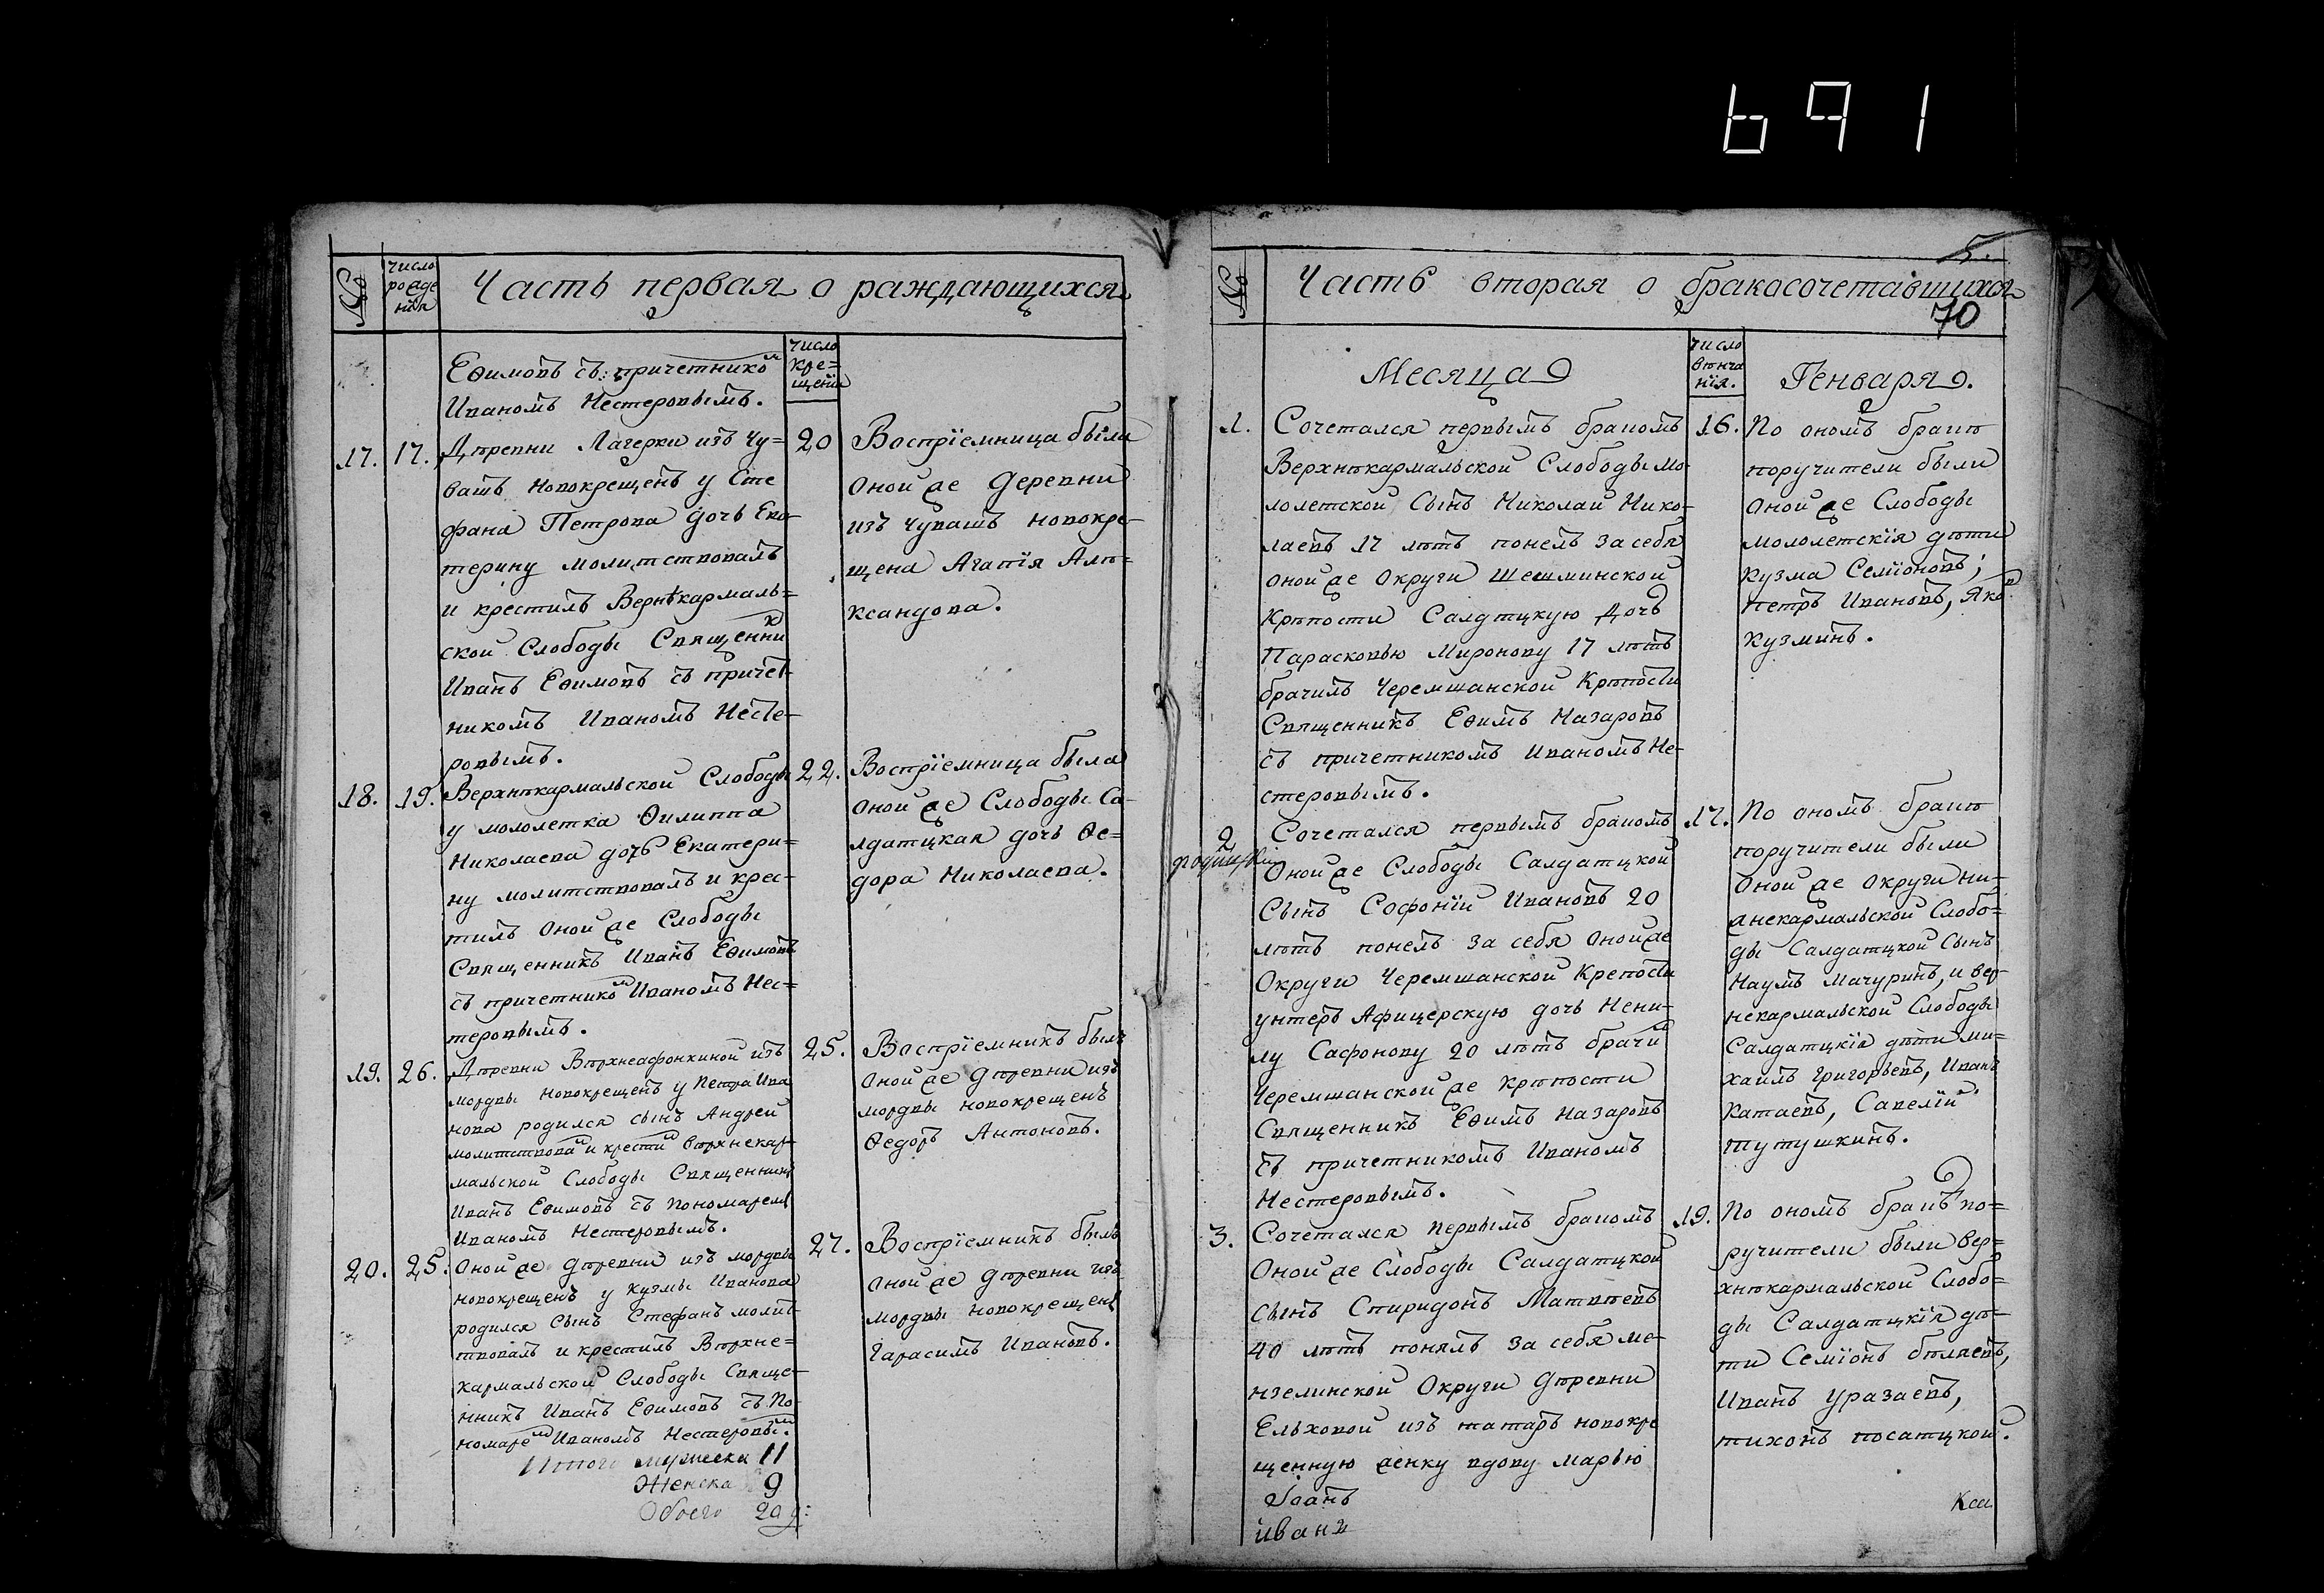 691
№
число рожде нія
Часть первая о раждающихся
число кре= щенія
Ефимовъ съ причетником
Иваномъ Нестеровымъ.
17. 17. Деревни Лагерки изъ чу=
вашъ новокрещенъ у Сте
фана Петрова дочь Ека-
терину молитствовалъ
и крестилъ Вернѣкармаль=
ской Слободы Священник
Иванъ Еѳимовъ съ причет-
никомъ Иваномъ Несте-
ровымъ.
20 Воспрїемница была
оной же деревни
изъ чувашъ новокре-
щена Агапїя Алѣ-
ксандова.
18. 19. Верхнѣкармальской Слободы
у мололетка Ѳилиппа
Николаева дочь Екатери=
ну молитствовалъ и крес-
тилъ оной же Слободы
Священникъ Иванъ Еѳимовъ
съ причетником Иваномъ Нес=
теровымъ.
22. Воспрїемница была
оной же Слободы Са-
лдатцкая дочь Ѳе=
дора Николаева.
19. 26. Дѣревни Вѣрхнеафонкиной изъ
мордвы новокрещенъ у Петра Ива
нова родился сынъ Андрей
молитствовал и крестил вѣрхнекар-
мальской Слободы Священникъ
Иванъ Еѳимовъ съ пономаремъ
Иваномъ Нестеровымъ.
25. Воспрїемникъ былъ
оной же дѣревни изъ
мордвы новокрещенъ
Ѳедоръ Антоновъ.
20. 25. Оной же дѣревни изъ мордвы
новокрещенъ у Кузмы Иванова
родился сынъ Стефанъ молит-
ствовалъ и крестилъ Вѣрхне=
кармальской Слободы Свяще-
нникъ Иванъ Еѳимовъ съ По-
номарем Иваномъ Нестеровым.
27. Воспрїемникъ былъ
оной же дѣревни изъ
мордвы новокрещенъ
Гарасимъ Ивановъ.
Итого мужеска 11
Женска 9
Обоего 20 д:
5.
№
Часть вторая о бракосочетавшихся
70
Месяца
число вѣнча нїя.
Генваря.
1. Сочетался первымъ бракомъ
Верхнѣкармальской Слободы мо-
лолетской Сынъ Николай Нико-
лаевъ 17 лѣтъ понелъ за себя
оной же Округи Шешминской
Крѣпости Салдтцкую Дочь
Парасковью Миронову 17 лѣтъ
брачилъ Черемшанской Крѣпости
Священникъ Еѳимъ Назаровъ
съ причетникомъ Иваномъ Не-
стеровымъ.
16. По ономъ бракѣ
поручители были
оной же Слободы
мололетскїя дѣти
Кузма Семїоновъ;
Петръ Ивановъ, Яков
Кузминъ.
2 Сочетался первымъ бракомъ
Оной же Слободы Салдатцкой
Сынъ Софонїй Ивановъ 20
лѣтъ понелъ за себя оной же
Округи Черемшанской Крепости
унтеръ Афицерскую дочь Нени-
лу Сафонову 20 лѣтъ брачил
Черемшанской же крѣпости
Священникъ Еѳимъ Назаровъ
съ причетникомъ Иваномъ
Нестеровымъ.
17. По ономъ бракѣ
поручители были
оной же Округи Ни-
жнекармальской Слобо=
ды Салдатцкой Сынъ
Наумъ Мачуринъ, и вер-
некармальской Слободы
Салдатцкїя дѣти ми-
хаилъ Григорьевъ, Иванъ
Катаевъ, Савелїй
Тутушкинъ.
3. Сочетался первымъ бракомъ
Оной же Слободы Салдатцкой
сынъ Спиридонъ Матвѣевъ
40 лѣтъ понялъ за себя ме-
нзелинской Округи Дѣревни
Ельховой изъ татаръ новокре
щенную женку вдову Марью
19. По ономъ бракѣ по=
ручители были вер=
хнѣкармальской Слобо=
ды Салдатцкїя дѣ-
ти Семїонъ бѣляевъ,
Иванъ Уразаевъ,
тихонъ посатцкой.
Иванъ